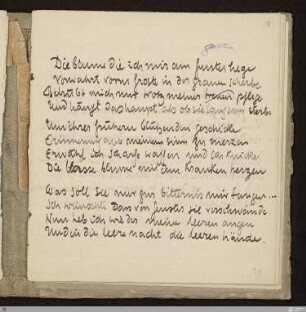 guten
Die blume die ich mir am fenster hege
Verwahrt vorm froste in der grauen scherbe
Betrübt mich nur trotz meiner treuen pflege
Und hängt das haupt als ob sie langsam sterbe
Um ihrer frühern blühenden geschicke
Erinnerung aus meinem sinn zu merzen
Erwähl ich scharfe waffen und ich knicke
Die blasse blume mit dem kranken herzen
Was soll sie nur zur bitternis mir taugen...
Ich wünschte dass vom fenster sie verschwände
Nun heb ich wieder meine leeren augen
Und in die leere nacht die leeren hände.